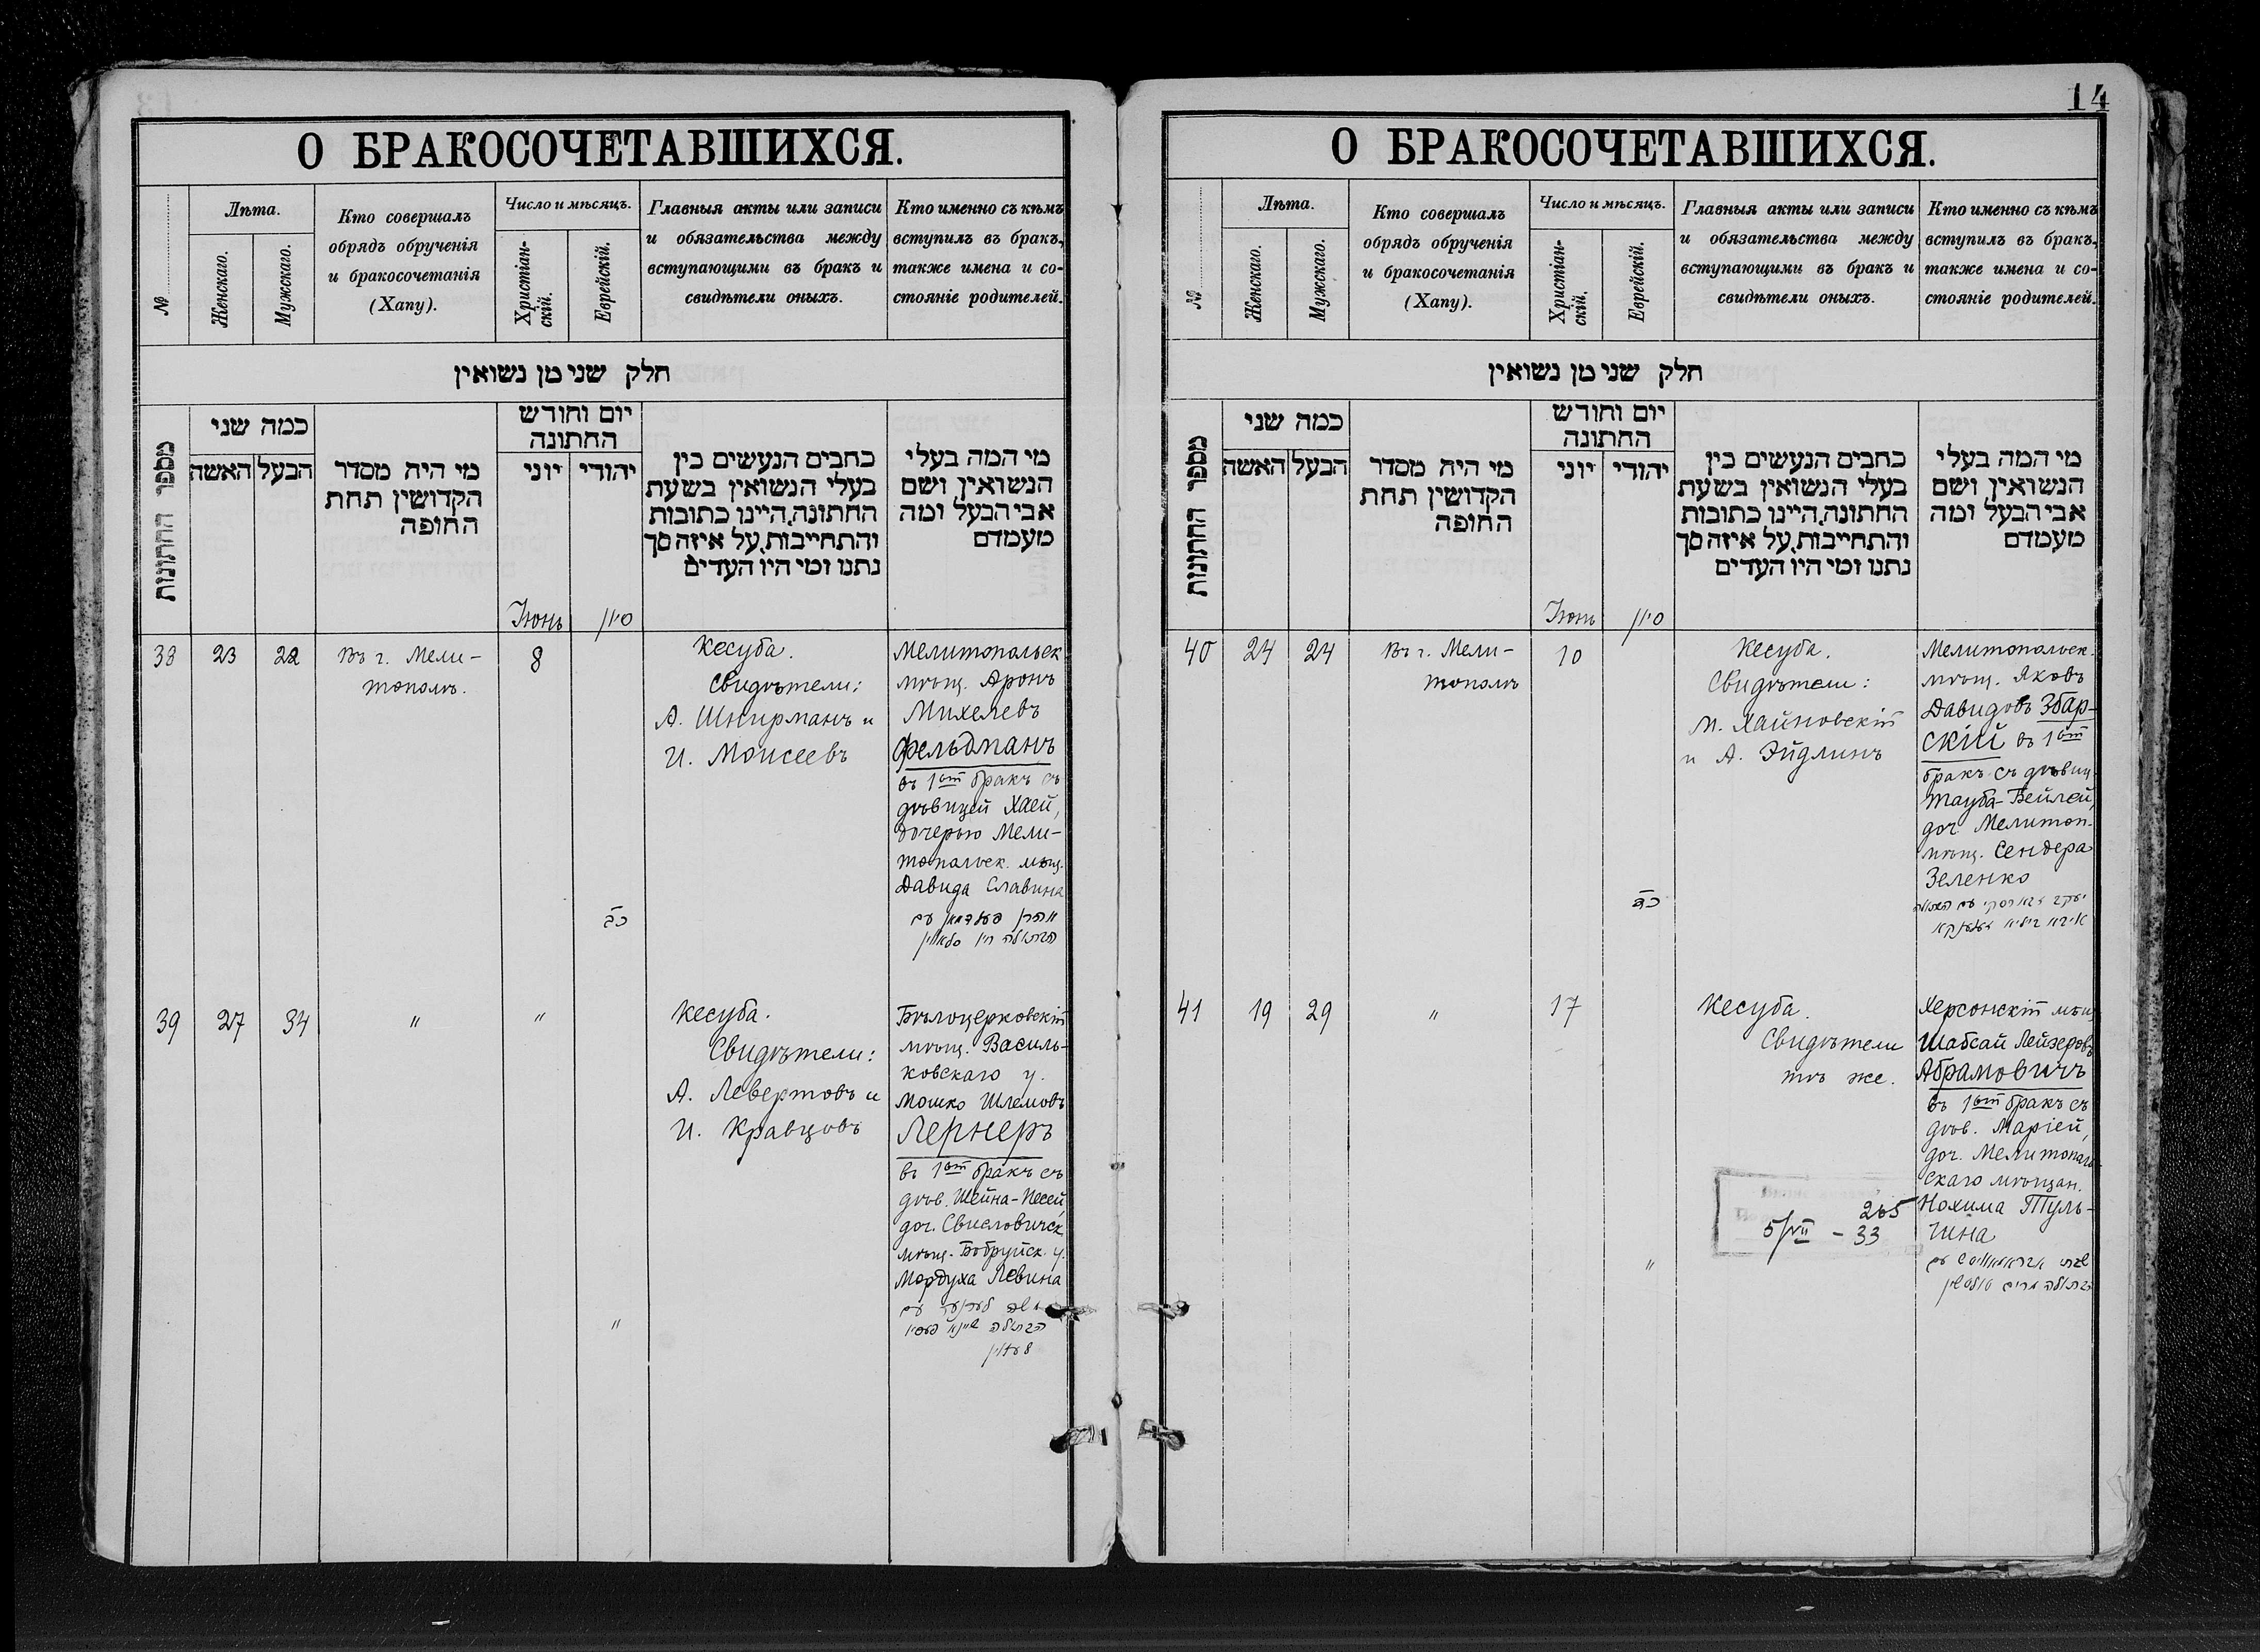 14
О БРАКОСОЧЕТАВШИХСЯ.
№
Лѣта.
Женскаго.
Мужскаго.
Кто совершалъ
обрядъ обрученія
и бракосочетанія
(Хапу).
Число и мѣсяцъ.
Христіан-
скій.
Еврейскій.
Главныя акты или записи
и обязательства между
вступающими въ бракъ и
свидѣтели оныхъ.
Кто именно съ кѣмъ
вступилъ въ бракъ,
также имена и со-
стояніе родителей.
חלק שני מן נשואין
מספר החתונות
כמה שני
האשה
הבעל
מי היה מסדר
הקדושין תחת
החופה
יום וחודש
החתונה
יוני
יהודי
כתבים הנעשים בין
בעלי הנשואין בשעת
החתונה, היינו כתובות
והתחייבות, על איזה סך
נתנו ומי היו העדים
מי המה בעלי
הנשואין ושם
אבי הבעל ומה
מעמדם
Іюнь
סיון
38
23
22
Въ г. Мели-
тополѣ.
8
Кесуба.
Свидѣтели:
А. Шнирманъ и
И. Моисеевъ
Мелитопольск
мѣщ. Аронъ
Михелевъ
Фельдманъ
въ 1ый бракъ съ
дѣвицей Хаей,
дочерью Мели-
топольск. мѣщ.
Давида Славина
כה
39
27
34
"
"
Кесуба.
Свидѣтели:
А. Левертовъ и
И. Кравцовъ
Бѣлоцерковскій
мѣщ. Василь-
ковскаго у.
Мошко Шлемовъ
Лернеръ
въ 1ый бракъ съ
дѣв. Шейна-Песей,
доч. Свисловичск.
мѣщ. Бобруйск. у.
Мордуха Левина
"
О БРАКОСОЧЕТАВШИХСЯ.
№
Лѣта.
Женскаго.
Мужскаго.
Кто совершалъ
обрядъ обрученія
и бракосочетанія
(Хапу).
Число и мѣсяцъ.
Христіан-
скій.
Еврейскій.
Главныя акты или записи
и обязательства между
вступающими въ бракъ и
свидѣтели оныхъ.
Кто именно съ кѣмъ
вступилъ въ бракъ,
также имена и со-
стояніе родителей.
חלק שני מן נשואין
מספר החתונות
כמה שני
האשה
הבעל
מי היה מסדר
הקדושין תחת
החופה
יום וחודש
החתונה
יוני
יהודי
כתבים הנעשים בין
בעלי הנשואין בשעת
החתונה, היינו כתובות
והתחייבות, על איזה סך
נתנו ומי היו העדים
מי המה בעלי
הנשואין ושם
אבי הבעל ומה
מעמדם
Іюнь
סיון
40
24
24
Въ г. Мели-
тополѣ
10
Кесуба.
Свидѣтели:
М. Хайновскій
и А. Эйдлинъ
Мелитопольск.
мѣщ. Яковъ
Давидовъ Збар-
скій въ 1ый
бракъ съ дѣвиц.
Тауба-Бейлей,
доч Мелитоп.
мѣщ. Сендера
Зеленко
41
19
29
"
17
Кесуба.
Свидѣтели
тѣ же.
Херсонскій мѣщ.
Шабсай Лейзеровъ
Абрамовичъ
въ 1ый бракъ съ
дѣв. Маріей,
доч. Мелитополь-
скаго мѣщан.
Нохима Туль-
чина
"
265
5/VII - 33